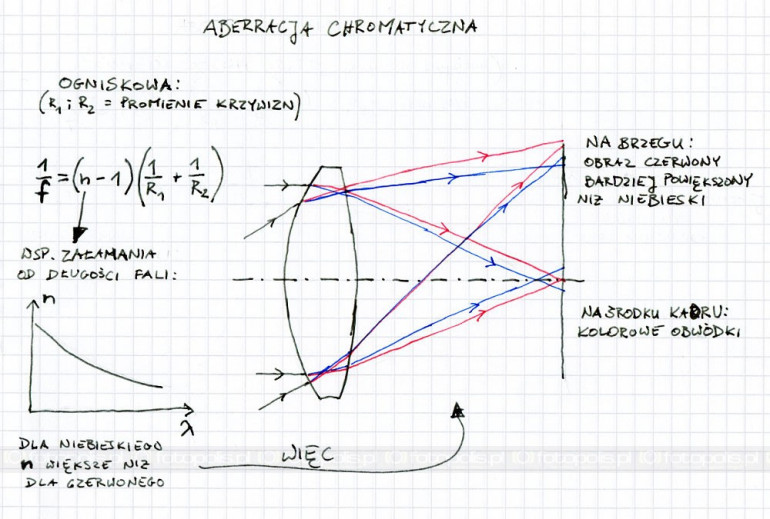 ABERRACJA CHROMATYCZNA
OGNISKOWA:
(R1 i R2 = PROMIENIE KRZYWIZN)
1/f = (n - 1) (1/R1 + 1/R2)
WSP. ZAŁAMANIA
OD DŁUGOŚCI FALI:
n
λ
DLA NIEBIESKIEGO
n WIĘKSZE NIZ
DLA CZERWONEGO
WIĘC
NA BRZEGU:
OBRAZ CZERWONY
BARDZIEJ POWIĘKSZONY
NIZ NIEBIESKI
NA ŚRODKU KADRU:
KOLOROWE OBWÓDKI